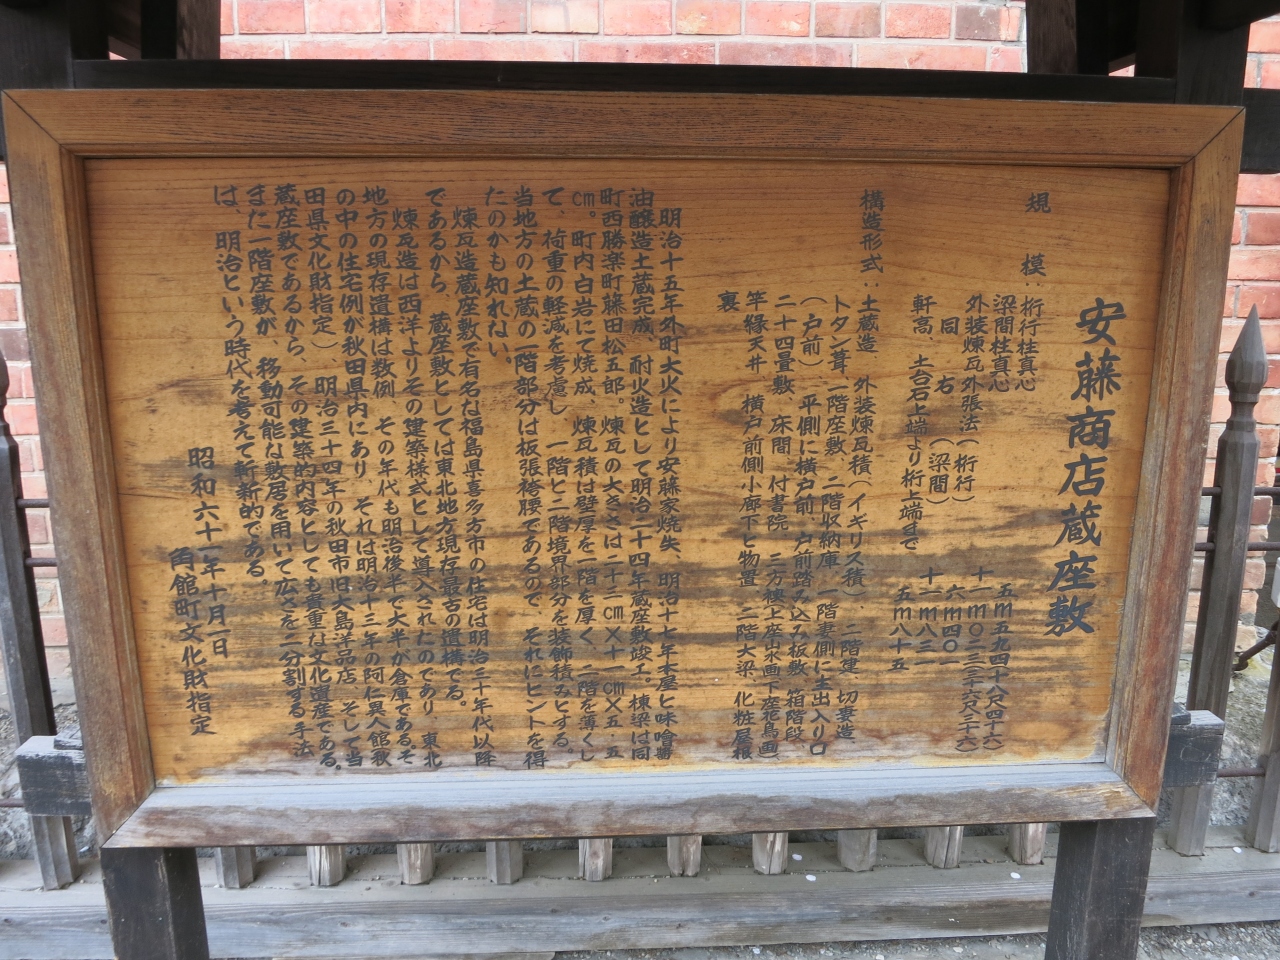 安藤商店蔵座敷
規模:桁行柱真心 五m五九四十八尺四十六)
梁間柱真心
外装煉瓦外張法(桁行) 十一m〇二三三十六尺三十六)
同 右 (梁間) 六m四〇一
軒高、土台石上端より桁上端まで 十一m八三一
五m八十五
構造形式:土蔵造 外装煉瓦積(イギリス積)、二階建 切妻造
トタン葺 一階座敷 二階収納庫、一階妻側に主出入り口
(戸前) 平側に横戸前、戸前踏み込み板敷 箱階段
二十四畳敷 床間 付書院、三方襖上座山水画下座花鳥画)
竿縁天井 横戸前側小廊下と物置 二階大梁、化粧屋根
裏
明治十五年外町大火により安藤家焼失、明治十七年本屋と味噌醤
油醸造土蔵完成、耐火造として明治二十四年蔵座敷竣工。棟梁は同
町西勝楽町藤田松五郎。煉瓦の大きさ二十二㎝×十一㎝×五・五
㎝。町内白岩にて焼成、煉瓦積は壁厚を一階を厚く、二階を薄くし
て、荷重の軽減を考慮し、一階と二階境界部分を装飾積みとする。
当地方の土蔵の一階部分は板張袴腰であるので、それにヒントを得
たのかも知れない。
煉瓦造蔵座敷で有名な福島県喜多方市の住宅は明治三十年代以降
であるから、蔵座敷としては東北地方現存最古の遺構でる。
煉瓦造は西洋よりその建築様式として導入されたのであり、東北
地方の現存遺構は数例、その年代も明治後半で大半が倉庫であるそ
の中の住宅例が秋田県内にあり、それは明治十三年の阿仁異人館秋
田県文化財指定)、明治三十四年の秋田市旧大島洋品店、そして当
蔵座敷であるから、その建築的内容としても貴重な文化遺産である。
また一階座敷が、移動可能な敷居を用いて広さを二分割する手法
は、明治という時代を考えて斬新的である。
昭和六十一年十月一日
角館町文化財指定